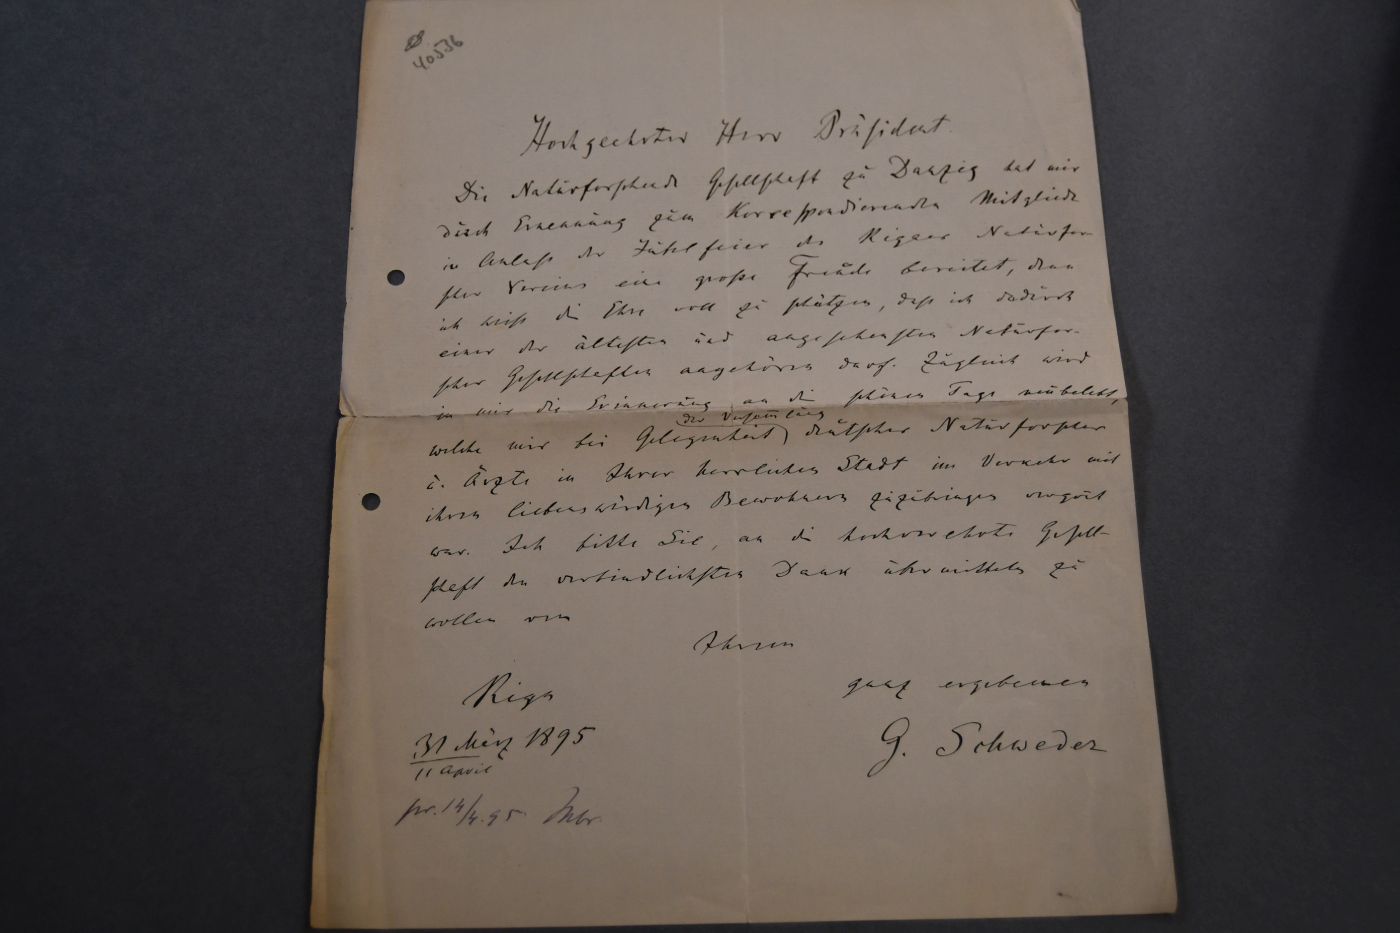 40536
Hochgeehrter Herr Präsident
Die Naturforschende Gesellschaft zu Danzig hat mir
durch Ernennung zum Korrespondierenden Mitgliede
in Anlass der Jubelfeier des Rigaer Naturfor-
scher Vereins eine große Freude bereitet, denn
ich weiß die Ehre voll zu schätzen, daß ich dadurch
einer der ältesten und angesehensten Naturfor-
scher Gesellschaften angehören darf. Zugleich wird
in mir die Erinnerung an die schönen Tage neubelebt,
welche mir bei Gelegenheit der Versamlung deutscher Naturforscher
u. Ärzte in Ihrer herrlichen Stadt im Verkehr mit
ihren liebenswürdigen Bewohnern zuzubringen vergönt
war. Ich bitte Sie, an die hochverehrte Gesell-
schaft den verbindlichsten Dank übermitteln zu
wollen von
Ihrem
ganz ergebenen
G. Schweder
Riga
31 März 1895
11 April
pr. 14/4. 95